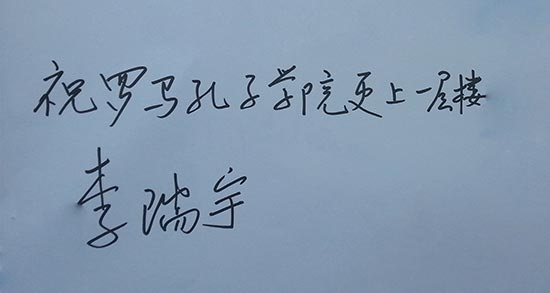 祝罗马孔子学院更上一层楼
李瑞宇